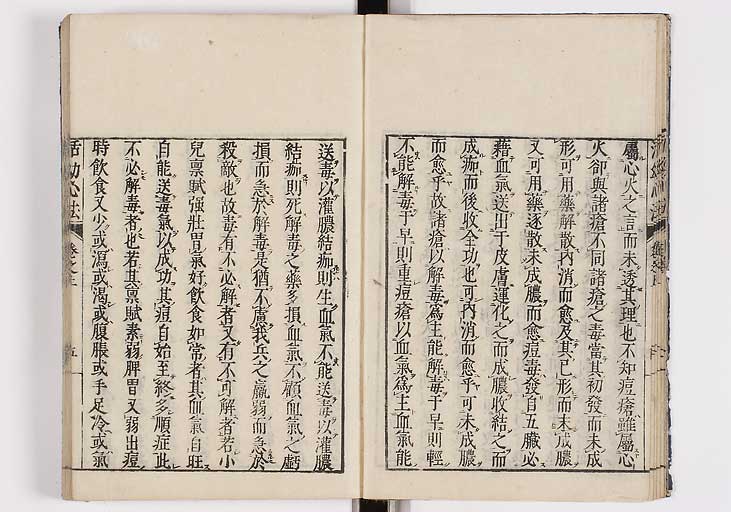 屬心火之言而未透其理也不知痘瘡雖屬心
火卻與諸瘡不同諸瘡之毒當其初發而未成
形可用藥解散內消而愈及其已形而未成膿
又可用藥逐散未成膿而愈痘毒發自五臟必
藉血氣送出于皮膚運化之而成膿收結之而
成痂而後收全功也可內消而愈乎可未成膿
而愈乎故諸瘡以解毒爲主能解毒于早則輕
不能解毒于早則重痘瘡以血氣爲主血氣能
送毒以灌膿結痂則生血氣不能送毒以灌膿
結痂則死解毒之藥多損血氣不顧血氣之虧
損而急於解毒是猶不慮我兵之羸弱而急於
殺敵也故毒有不必解者又有不可解者若小
兒禀賦强壯胃氣好飲食如常者其血氣自旺
自能送毒氣以成功其痘自始至終多順症此
不必解毒者也若其禀賦素弱脾胃又弱出痘
時飲食又少或瀉或渴或腹脹或手足冷或氣
活幼心法 卷之三 五